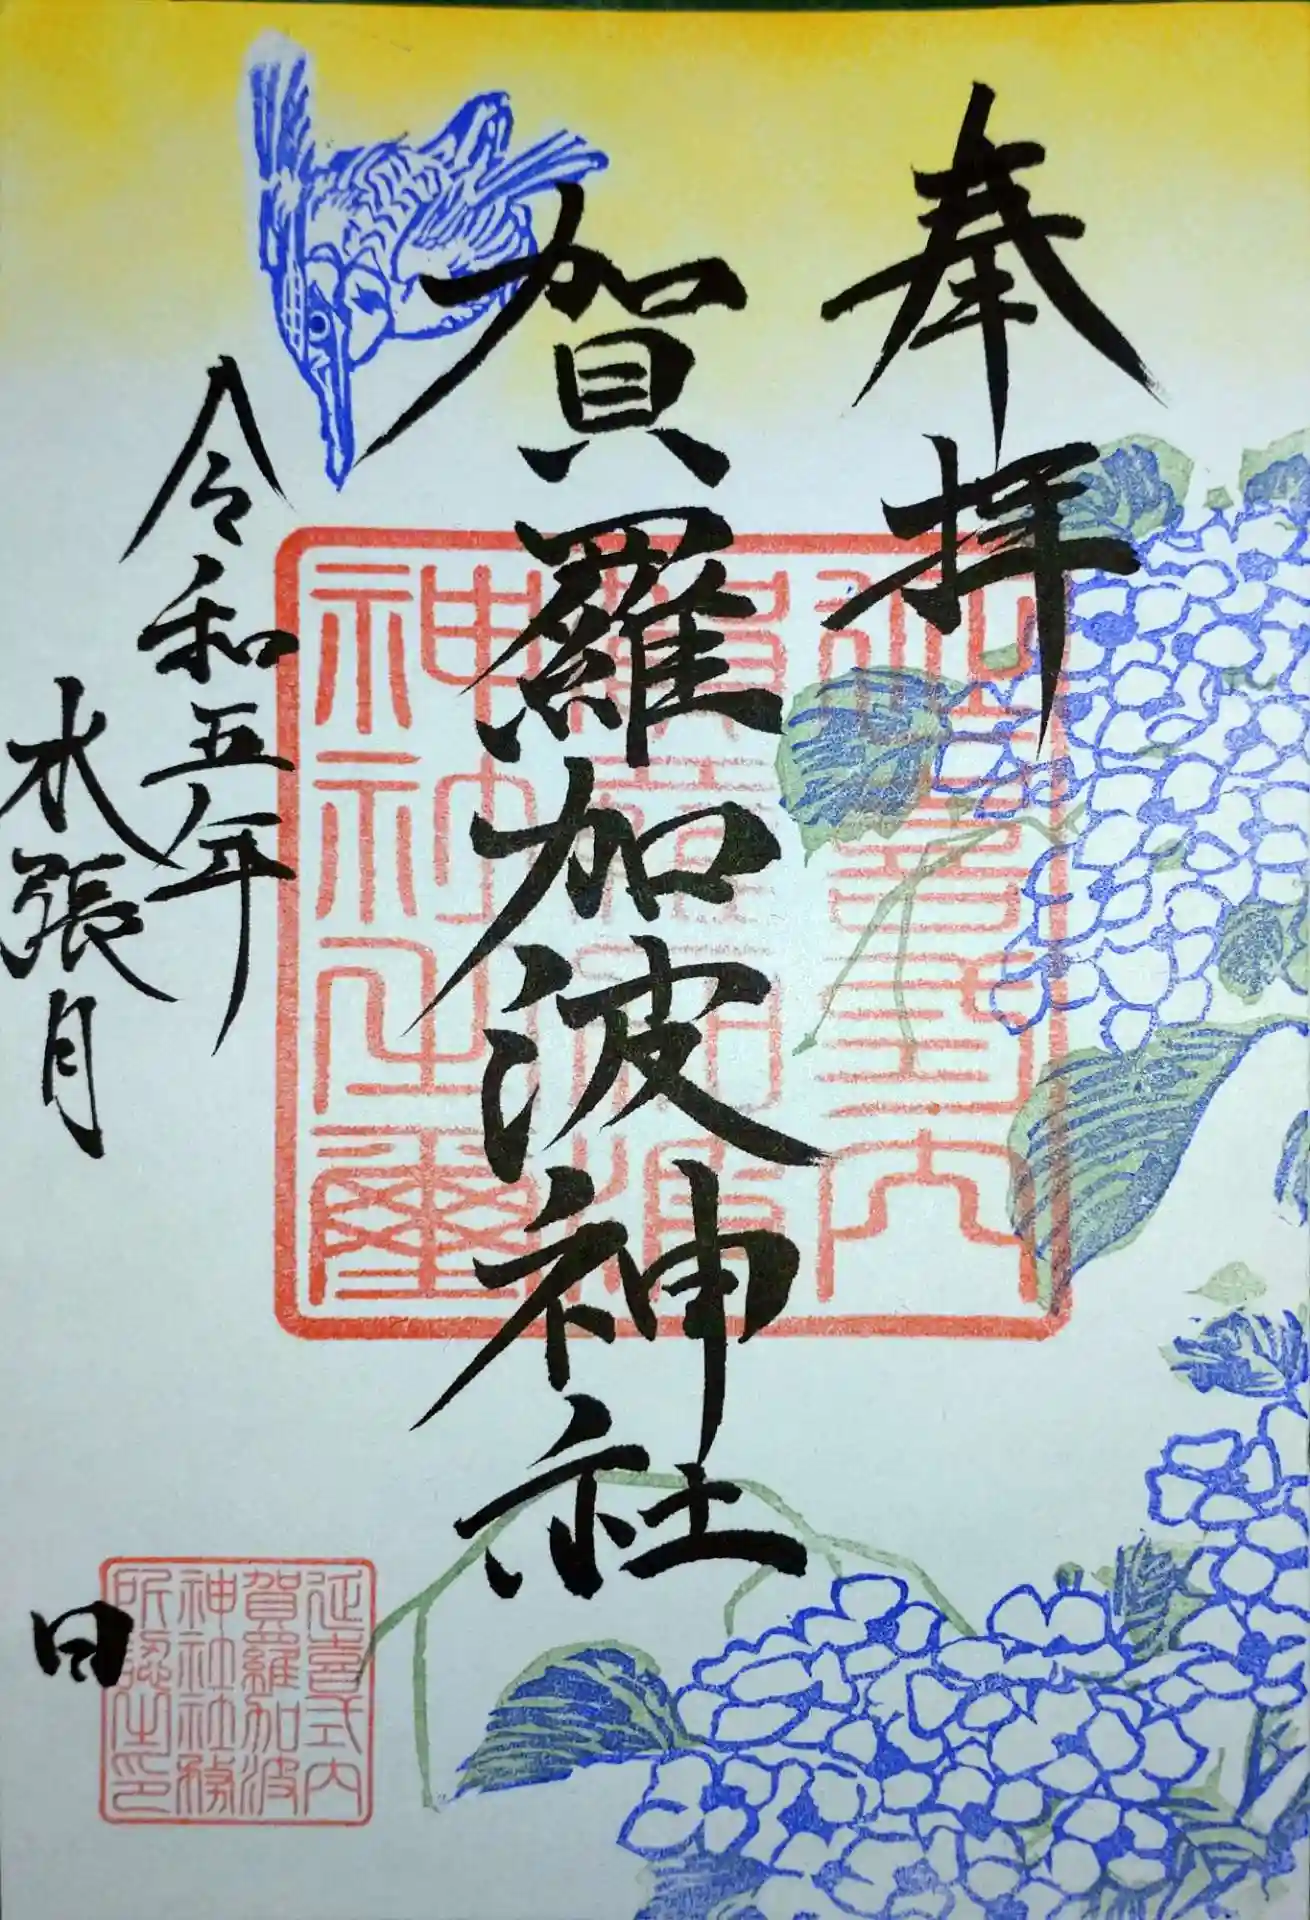 奉拝
賀羅加波神社
令和五年
水張月
日
延喜式内
賀羅加波
神社之璽
延喜式内
賀羅加波
神社社務
所認之印